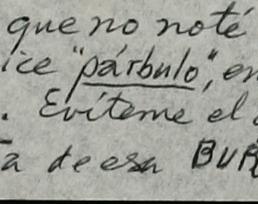 que no noté
ice "párbulo", en
. Evíteme el
a de esa BUR